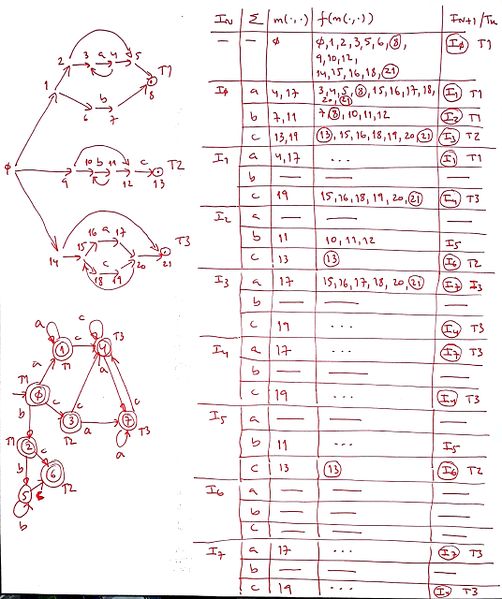 I_N Σ m(·,·) f(m(·,·)) I_N+1/T_N
— — φ φ,1,2,3,5,6,8, I_φ T1
9,10,12,
14,15,16,18,21
I_φ a 4,17 3,4,5,8,15,16,17,18, I_1 T1
20,21
b 7,11 7,8,10,11,12 I_2 T1
c 13,19 13,15,16,18,19,20,21 I_3 T2
I_1 a 4,17 ... I_1 T1
b — — —
c 19 15,16,18,19,20,21 I_4 T3
I_2 a — —
b 11 10,11,12 I_5
c 13 13 I_6 T2
I_3 a 17 15,16,17,18,20,21 I_7 I_3
b — — —
c 19 ... I_4 T3
I_4 a 17 ... I_7 T3
b — — —
c 19 ... I_4 T3
I_5 a — — —
b 11 ... I_5
c 13 13 I_6 T2
I_6 a — — —
b — — —
c — — —
I_7 a 17 ... I_7 T3
b — — —
c 19 ... T3
2 3 a 4 5 T1
1 6 b 7 8
φ 9 10 b 11 12 c 13 T2
14 15 16 a 17 18 c 19 20 21 T3
a c
1 c 4 T3
a T1 c a c
T1 φ c 3 a 7 T3
b T2 a
T1 2 c
b 6 T2
5
b